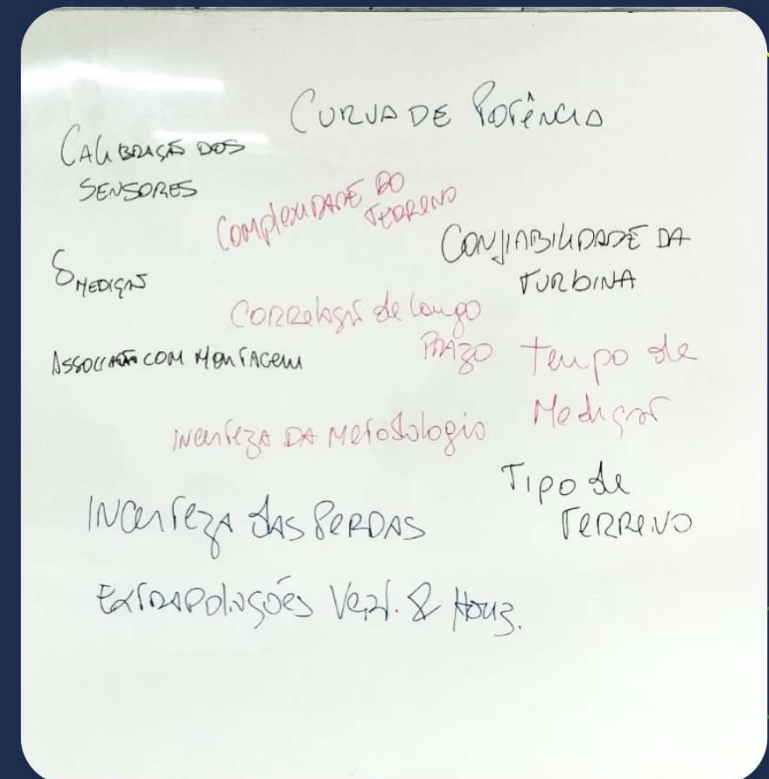 CURVA DE POTÊNCIA
CALIBRAÇÃO DOS
SENSORES
COMPLEXIDADE DO
TERRENO
CONFIABILIDADE DA
TURBINA
δMEDIÇÃO
CORRELAÇÃO de LONGO
PRAZO
ASSOCIAÇÃO COM MONTAGEM
Tempo de
Medição
INCERTEZA DA METODOLOGIA
TIPO de
TERRENO
INCERTEZA DAS PERDAS
EXTRAPOLAÇÕES VERT. & HORIZ.